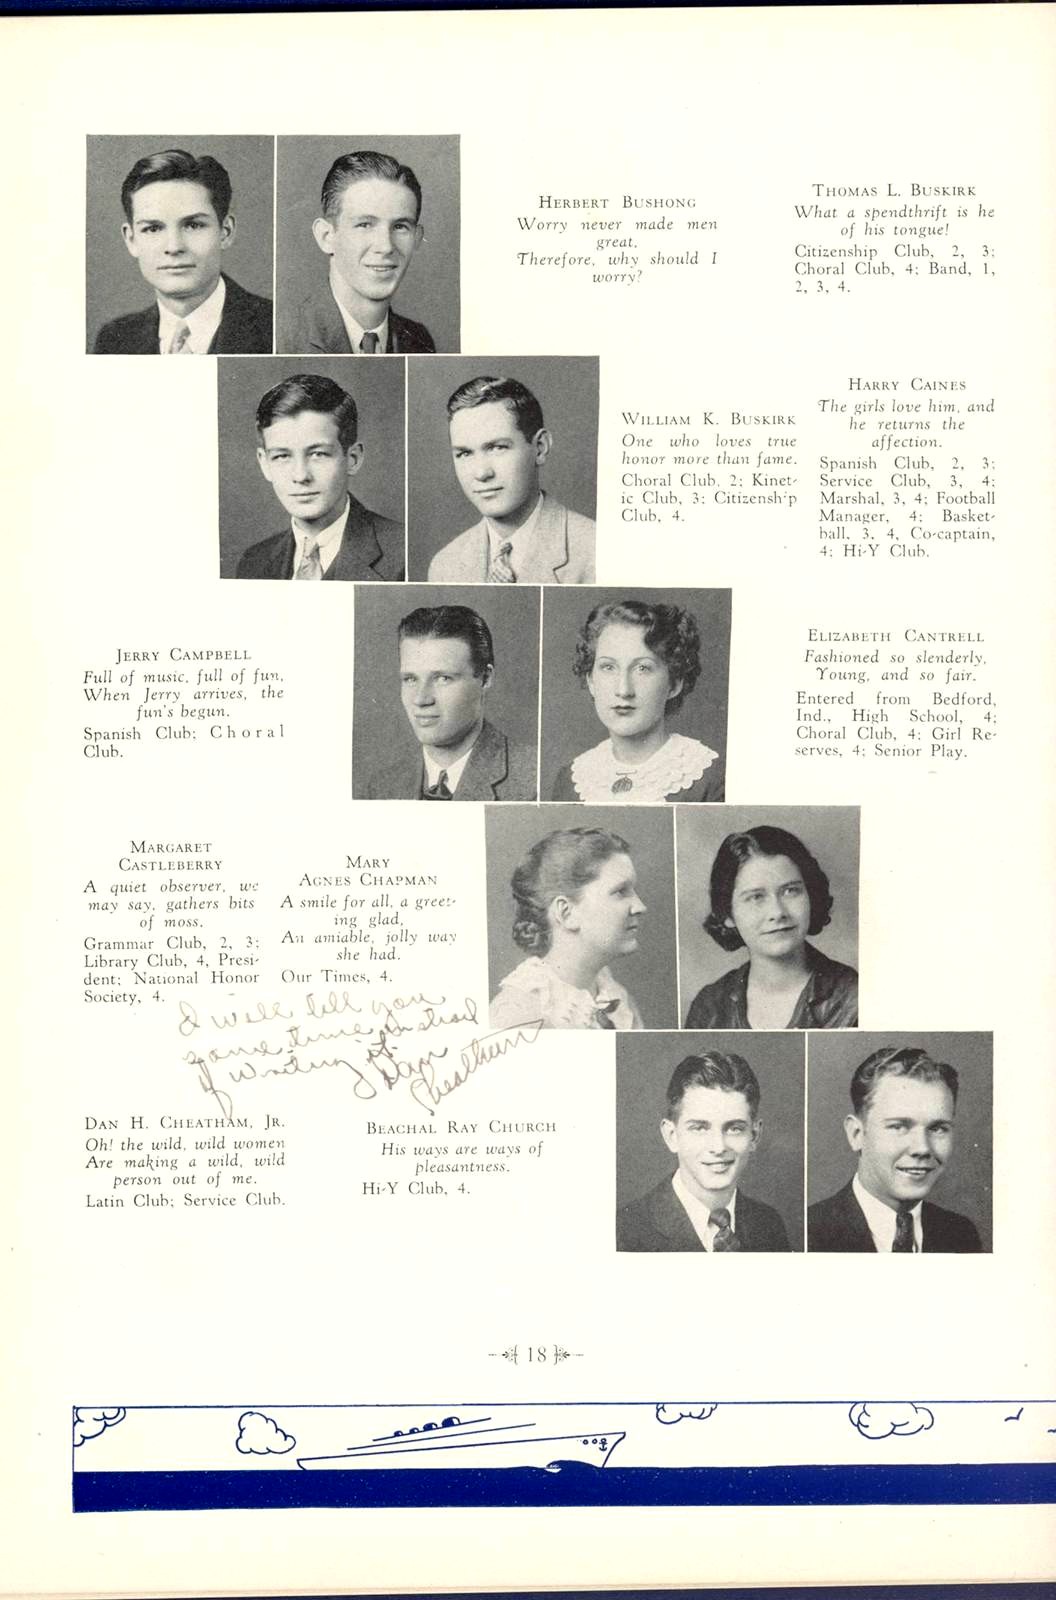 HERBERT BUSHONG
Worry never made men
great,
Therefore, why should I
worry?
THOMAS L. BUSKIRK
What a spendthrift is he
of his tongue!
Citizenship Club, 2, 3;
Choral Club, 4; Band, 1,
2, 3, 4.
WILLIAM K. BUSKIRK
One who loves true
honor more than fame.
Choral Club, 2; Kinet-
ic Club, 3; Citizenship
Club, 4.
HARRY CAINES
The girls love him, and
he returns the
affection.
Spanish Club, 2, 3;
Service Club, 3, 4;
Marshal, 3, 4; Football
Manager, 4; Basket-
ball, 3, 4, Co-captain,
4; Hi-Y Club.
JERRY CAMPBELL
Full of music, full of fun,
When Jerry arrives, the
fun's begun.
Spanish Club; Choral
Club.
ELIZABETH CANTRELL
Fashioned so slenderly,
Young, and so fair.
Entered from Bedford,
Ind., High School, 4;
Choral Club, 4; Girl Re-
serves, 4; Senior Play.
MARGARET
CASTLEBERRY
A quiet observer, we
may say, gathers bits
of moss.
Grammar Club, 2, 3;
Library Club, 4, Presi-
dent; National Honor
Society, 4.
MARY
AGNES CHAPMAN
A smile for all, a greet-
ing glad,
An amiable, jolly way
she had.
Our Times, 4.
I will tell you
some time instead
of writing it.
Dan
Cheatham
DAN H. CHEATHAM, JR.
Oh! the wild, wild women
Are making a wild, wild
person out of me.
Latin Club; Service Club.
BEACHAL RAY CHURCH
His ways are ways of
pleasantness.
Hi-Y Club, 4.
18